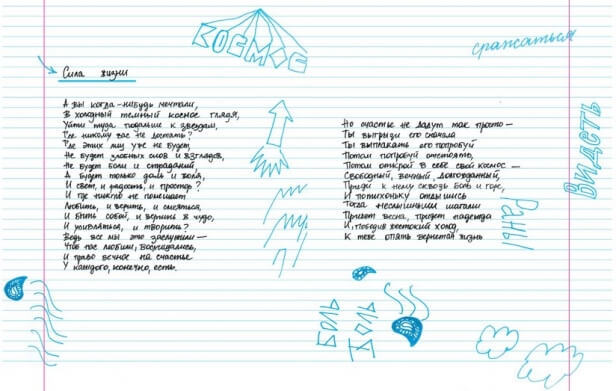 космос
сражаться
видеть
Сила жизни
А вы когда-нибудь мечтали,
В холодный темный космос глядя,
Уйти туда подальше к звездам,
Где никому вас не достать?
Где этих мук уже не будет,
Не будет злобных слов и взглядов,
Не будет боли и страданий
А будет только даль и воля,
И свет, и радость, и простор?
И где никто не помешает
Любить, и верить, и смеяться,
И быть собой, и верить в чудо,
И удивляться, и творить?
Ведь все мы это заслужили —
Чтоб нас любили, восхищались,
И право вечное на счастье
У каждого, конечно, есть.
Но счастье не дадут так просто —
Ты выгрызи его сначала
Ты выплакать его попробуй
Потом попробуй отстоять,
Потом открой в себе свой космос —
Свободный, вечный, долгожданный,
Приди к нему сквозь боль и горе,
И потихоньку отдышись
Тогда неслышными шагами
Придет весна, придет надежда
И, победив жестокий холод,
К тебе опять вернется жизнь
Раны
Боль
Холод